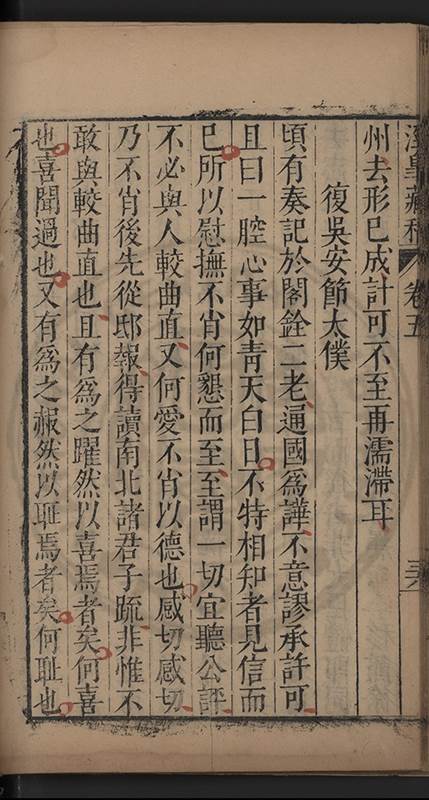 涇臯藏稿 卷五 三
州去形已成計可不至再濡滯耳
復吳安節太僕
頃有奏記於閣銓二老通國爲譁不意謬承許可
且曰一腔心事如靑天白日不特相知者見信而
已所以慰撫不肖何懇而至至謂一切宜聽公評
不必與人較曲直又何愛不肖以德也感切感切
乃不肖後先從邸報得讀南北諸君子疏非惟不
敢與較曲直也且有爲之躍然以喜焉者矣何喜
也喜聞過也又有爲之赧然以耻焉者矣何耻也